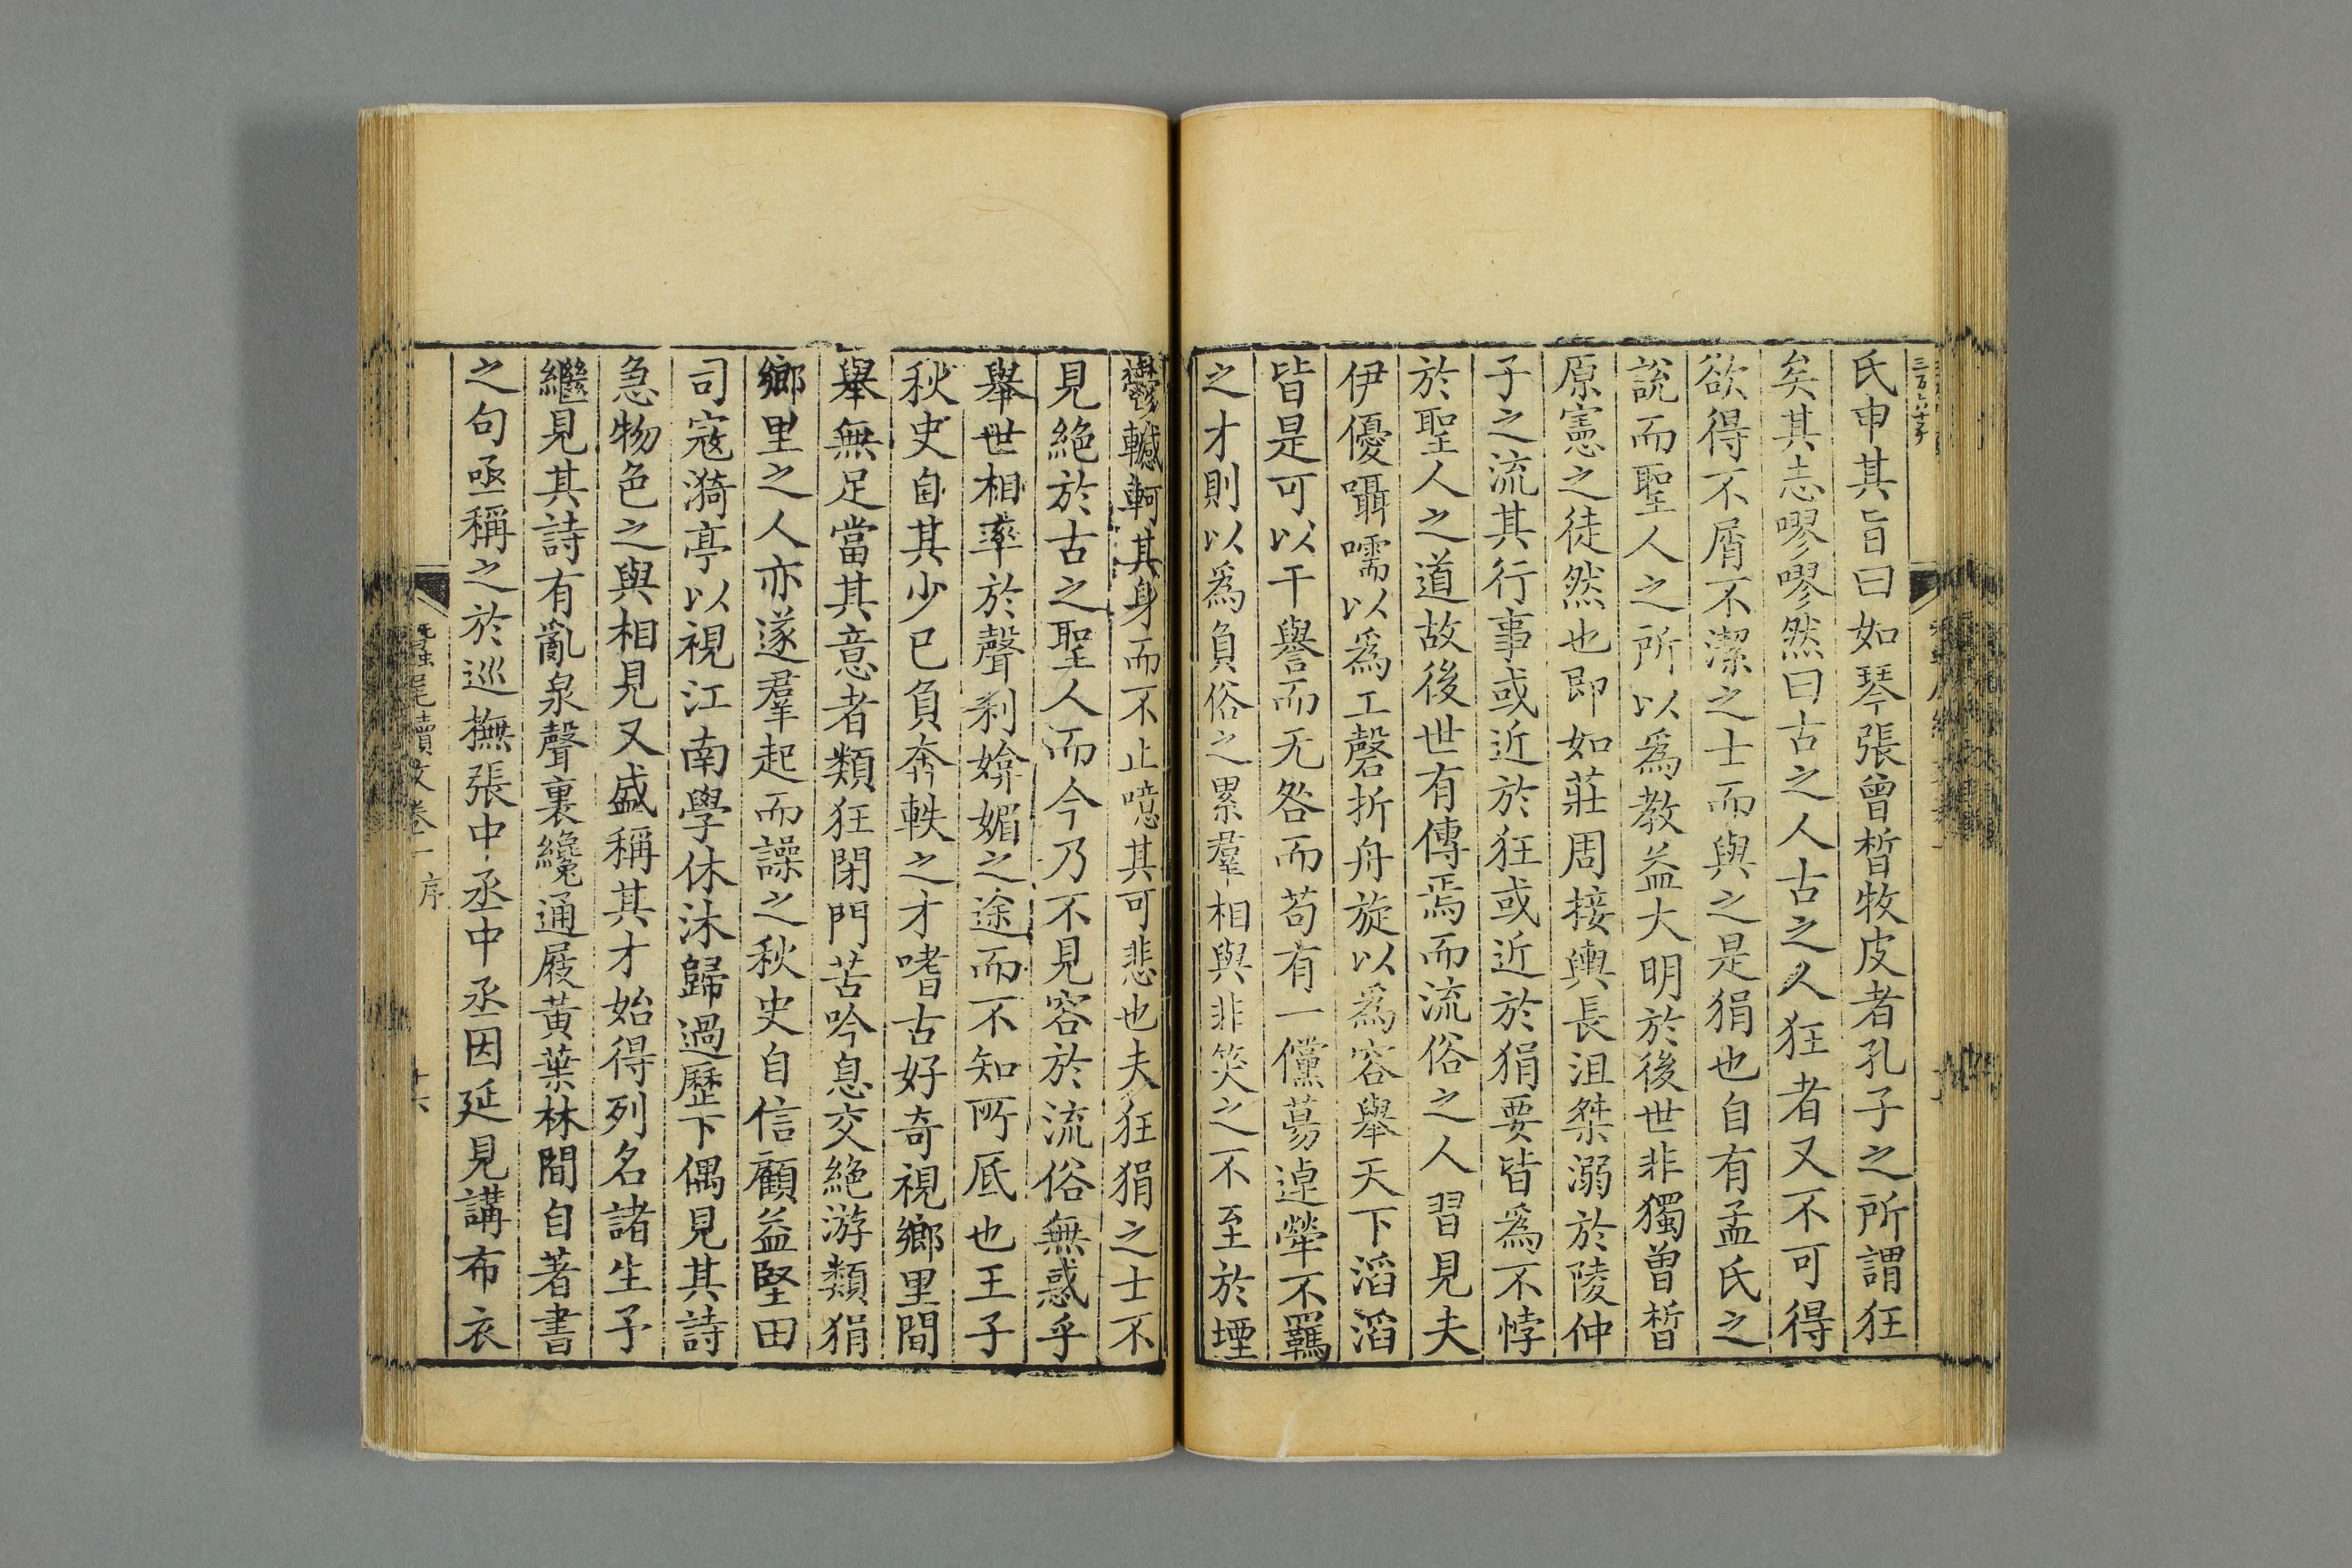 氏申其旨曰如琴張曾晳牧皮者孔子之所謂狂
矣其志嘐嘐然曰古之人古之人狂者又不可得
欲得不屑不潔之士而與之是狷也自有孟氏之
說而聖人之所以爲教益大明於後世非獨曾晳
原憲之徒然也即如莊周接輿長沮桀溺於陵仲
子之流其行事或近於狂或近於狷要皆爲不悖
於聖人之道故後世有傳焉而流俗之人習見夫
伊優囁嚅以爲工磬折舟旋以爲容舉天下滔滔
皆是可以干譽而无咎而苟有一儻蕩逴犖不羈
之才則以爲負俗之累羣相與非笑之不至於堙
鬱轗軻其身而不止噫其可悲也夫狂狷之士不
見絕於古之聖人而今乃不見容於流俗無惑乎
舉世相率於聲利媕媚之途而不知所底也王子
秋史自其少已負奔軼之才嗜古好奇視鄉里間
舉無足當其意者類狂閉門苦吟息交絕游類狷
鄉里之人亦遂羣起而譟之秋史自信顧益堅田
司寇漪亭以視江南學休沐歸過歷下偶見其詩
急物色之與相見又盛稱其才始得列名諸生予
繼見其詩有亂泉聲裏纔通屐黃葉林間自著書
之句亟稱之於巡撫張中丞中丞因延見講布衣
蠶尾續文卷一 序 十六